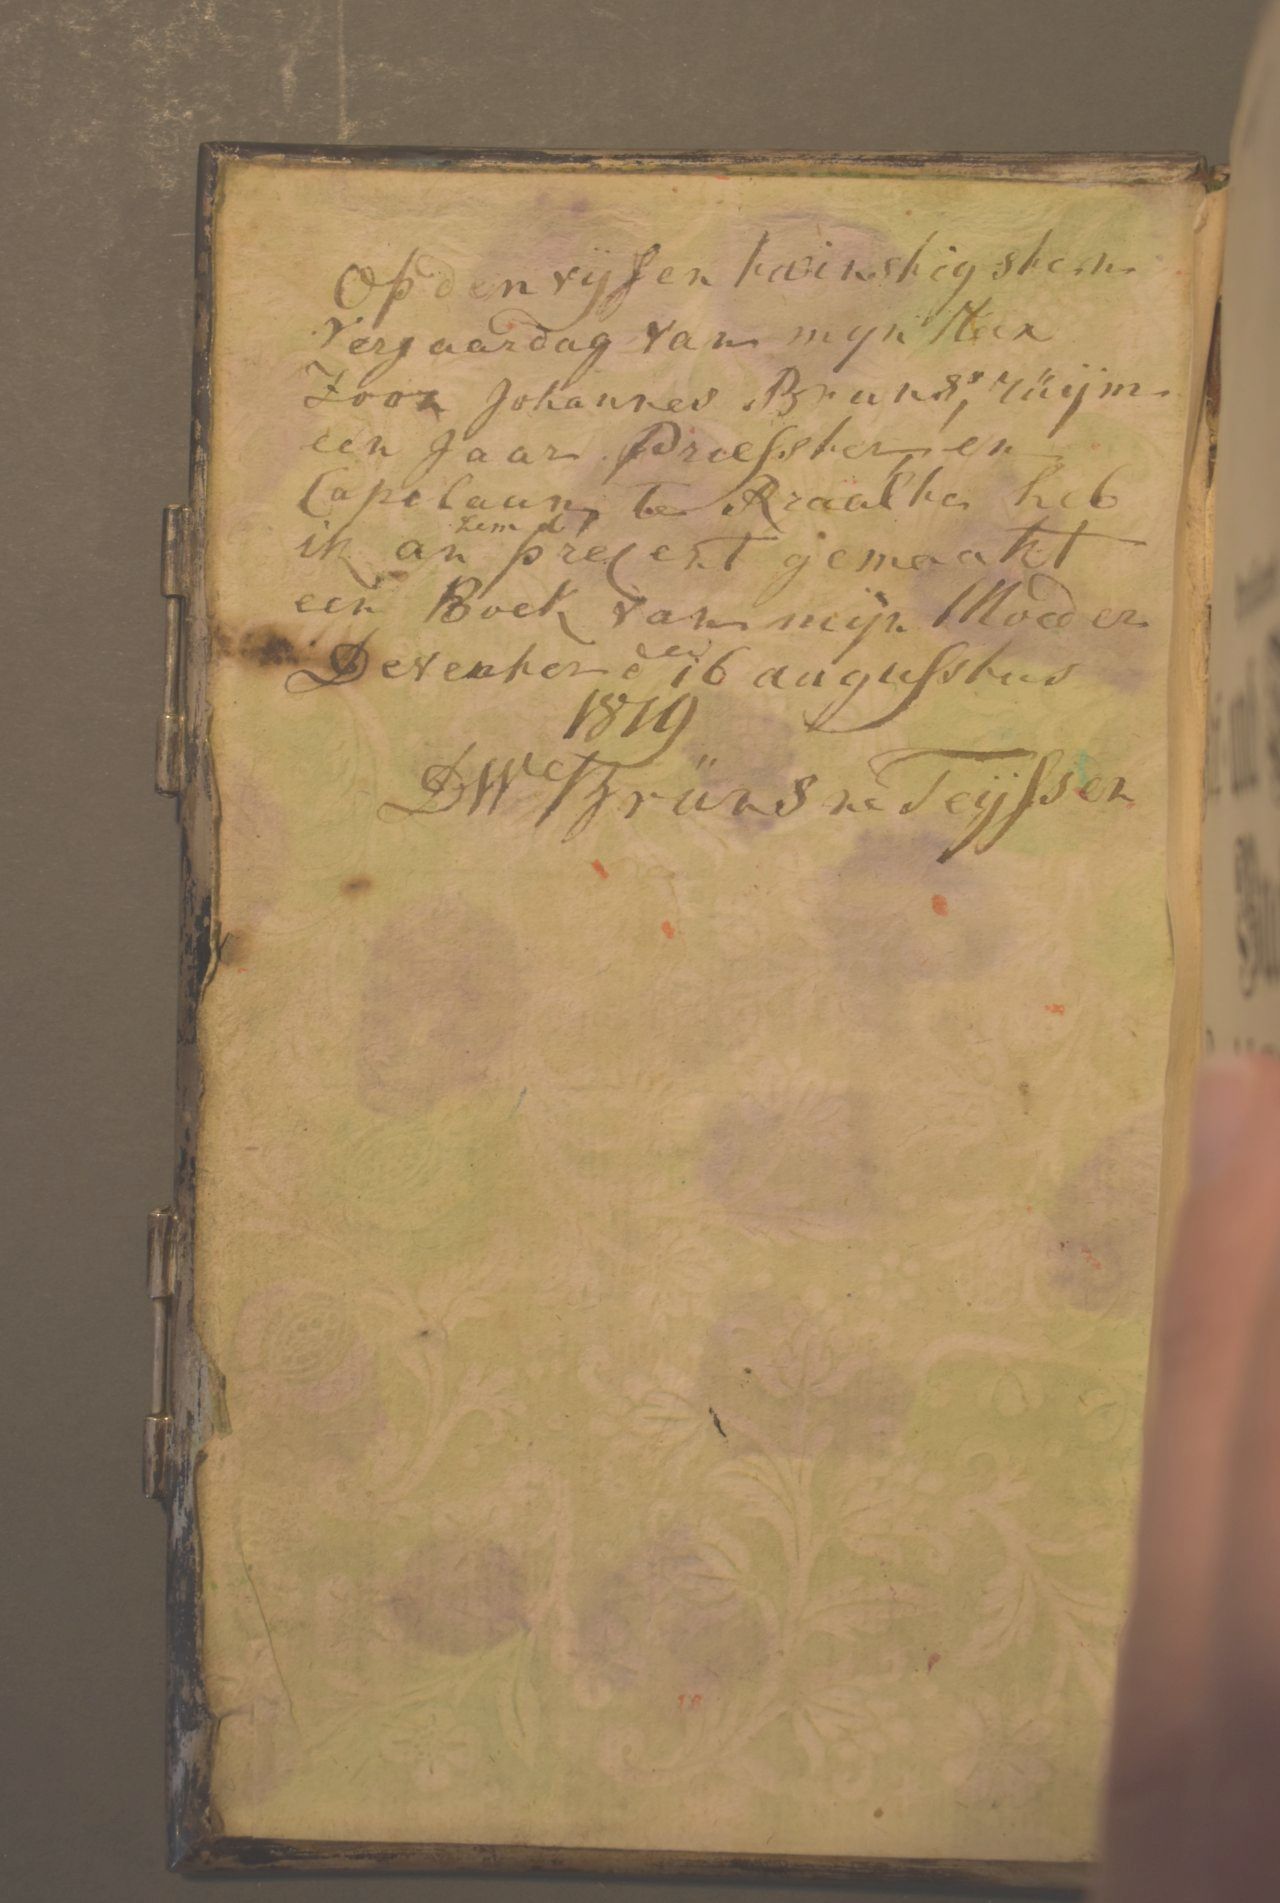 Op den vyfen twinstigsten
Verjaardag van myn Heer
Zoon Johannes Bruns, rüijm
een Jaar Priesster en
Capelaan te Raalte heb
ik an hem dit present gemaakt
een Boek van mijn Moeder
Deventer den 16 augusstus
1819
DW Brüns né Teijssen